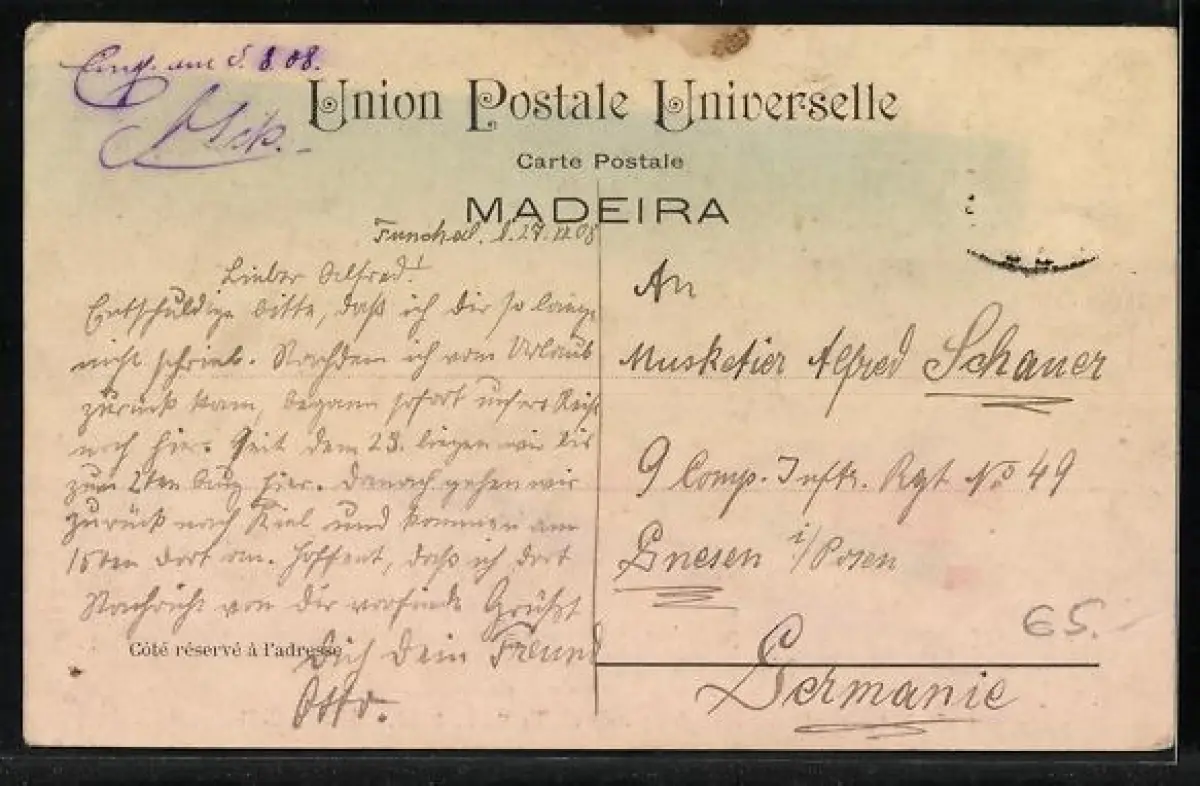 Eing. am 5.8.08.
Union Postale Universelle
Carte Postale
MADEIRA
Funchal. d. 27. 08
Lieber Alfred!
Entschuldige bitte, daß ich dir so lange
nicht schrieb. Nachdem ich vom Urlaub
zurück kam, begann sofort unsere Reise
nach hier. Seit dem 23. liegen wir bis
zum 2ten Aug hier. Danach gehen wir
zurück nach Kiel und kommen am
15ten dort an. Hoffent, daß ich dort
Nachricht von dir vorfinde Grüßt
Dich dein Freund
Otto.
Côté réservé à l'adresse
An
Musketier Alfred Schauer
9 Comp. Inftr. Rgt No 49
Gnesen i/Posen
Germanie
65.